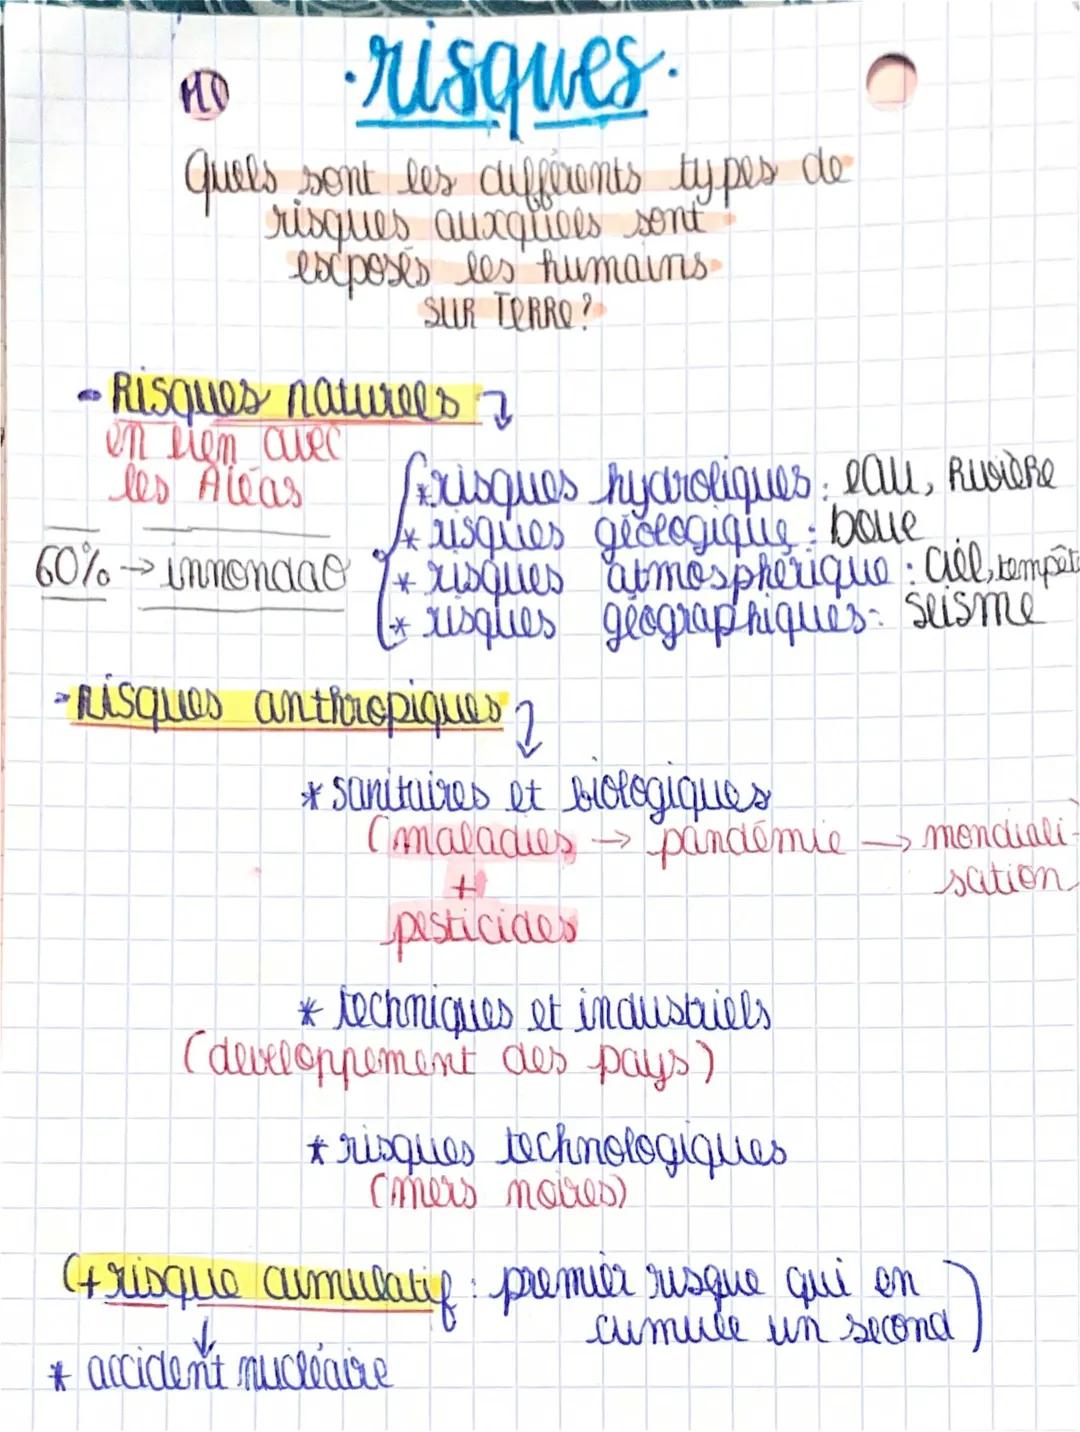 MO
risques.
Quels sont les différents types de
risques auxquels sont
exposés les humains
SUR TERRE?
- Risques naturels
en lien avec
les Aléas
60% → innondao
* risques hydroliques: eau, Rivière
* risques géologique: boue
* risques atmosphérique: Ciel, tempêt
* risques géographiques: seisme
- Risques anthropiques
* sanitaires et biologiques
(maladies → pandémie → mondiali-
sation
+
pesticides
* techniques et industriels
(developpement des pays)
* risques technologiques
(mers noires)
(+ risque cumulatif: premier risque qui en
cumule un second)
* accident nucléaire